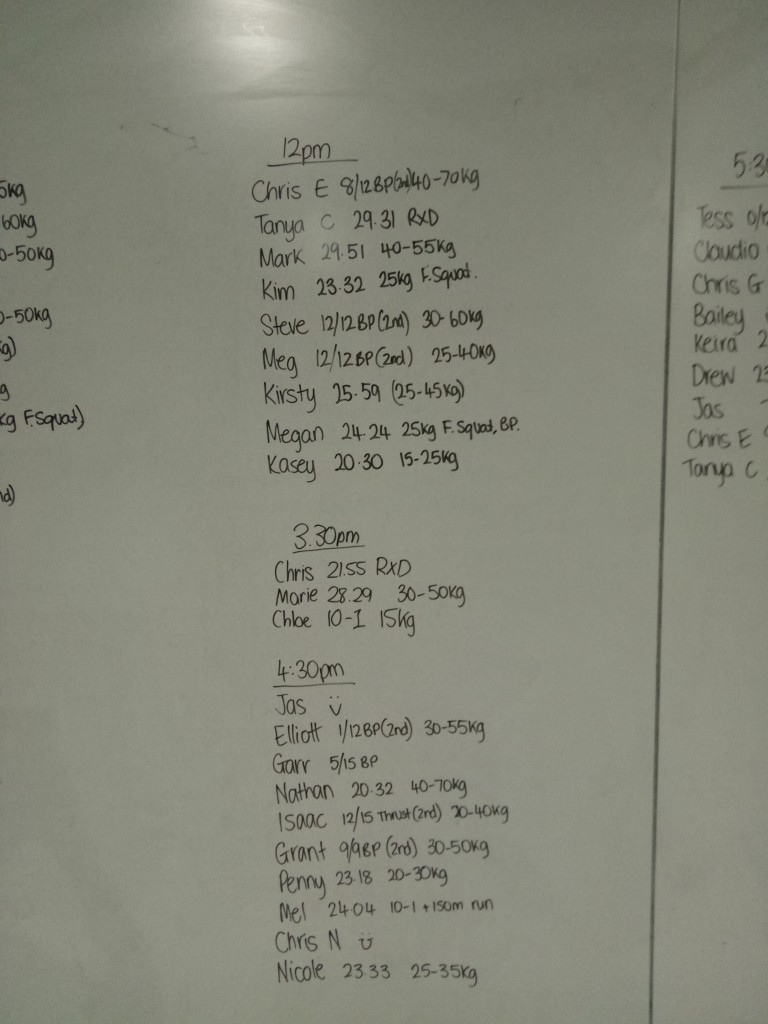 5kg
60kg
0-50kg
0-50kg
kg)
g
kg F.Squat)
nd)
12pm
Chris E 8/12BP(2nd)40-70kg
Tanya C 29.31 RXD
Mark 29.51 40-55kg
Kim 23.32 25kg F.Squat.
Steve 12/12BP(2nd) 30-60kg
Meg 12/12BP(2nd) 25-40kg
Kirsty 25.59 (25-45kg)
Megan 24.24 25kg F.Squat, BP.
Kasey 20.30 15-25kg
3.30pm
Chris 21.55 RXD
Marie 28.29 30-50kg
Chloe 10-1 15kg
4:30pm
Jas
Elliott 1/12BP(2nd) 30-55kg
Garr 5/15 BP
Nathan 20.32 40-70kg
Isaac 12/15 Thrust(2nd) 20-40kg
Grant 9/9BP (2nd) 30-50kg
Penny 23.18 20-30kg
Mel 24.04 10-1 +150m run
Chris N
Nicole 23.33 25-35kg
5:30
Tess
Claudio
Chris G
Bailey
Keira 2
Drew 23
Jas
Chris E
Tanya C